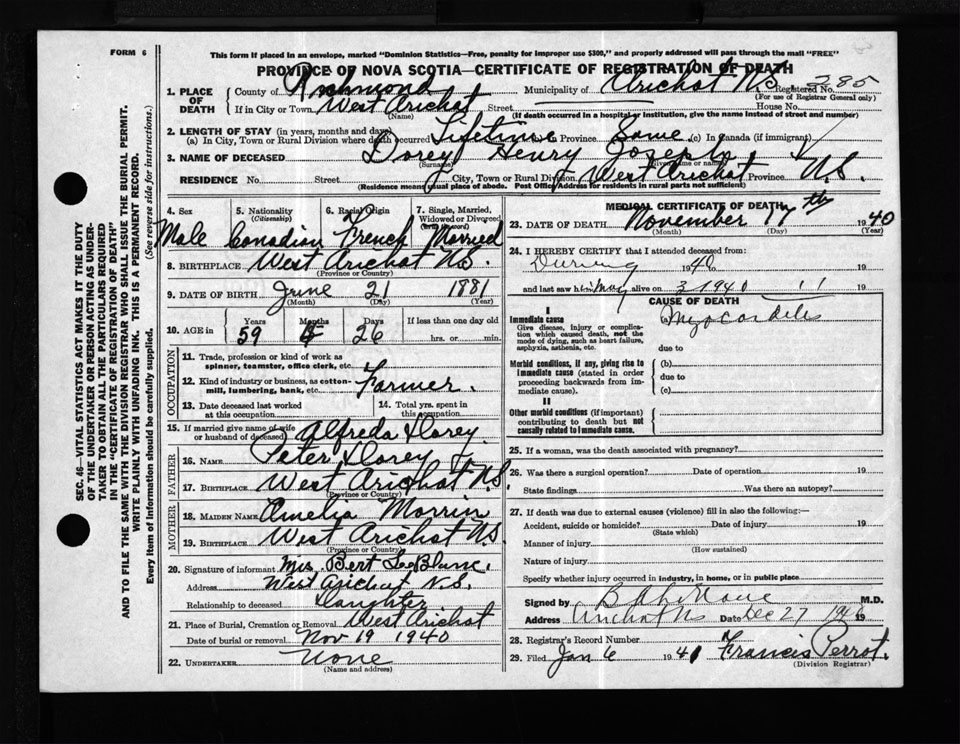 FORM 6
This form if placed in an envelope, marked "Dominion Statistics—Free, penalty for improper use $300," and properly addressed will pass through the mail "FREE"
PROVINCE OF NOVA SCOTIA—CERTIFICATE OF REGISTRATION OF DEATH
1. PLACE OF DEATH County of Richmond Municipality of Arichat N.S. Registered No. 285
(For use of Registrar General only)
If in City or Town West Arichat Street House No.
(Name) (If death occurred in a hospital or institution, give the name instead of street and number)
2. LENGTH OF STAY (in years, months and days)
(a) In City, Town or Rural Division where death occurred Lifetime Province Same (c) In Canada (if immigrant)
3. NAME OF DECEASED Dorey Henry Joseph
(Surname) (Given name or names)
RESIDENCE No. Street City, Town or Rural Division West Arichat Province N.S.
(Residence means usual place of abode. Post Office Address for residents in rural parts not sufficient)
4. Sex Male
5. Nationality (Citizenship) Canadian
6. Racial Origin French
7. Single, Married, Widowed or Divorced Married
8. BIRTHPLACE West Arichat N.S.
(Province or Country)
9. DATE OF BIRTH June 21 1881
(Month) (Day) (Year)
10. AGE in Years Months Days If less than one day old
59 26 hrs. or min.
OCCUPATION
11. Trade, profession or kind of work as spinner, teamster, office clerk, etc.
12. Kind of industry or business, as cotton-mill, lumbering, bank, etc. Farmer.
13. Date deceased last worked at this occupation
14. Total yrs. spent in this occupation
15. If married give name of wife or husband of deceased) Alfreda Dorey
FATHER
16. NAME Peter Dorey
17. BIRTHPLACE West Arichat N.S.
(Province or Country)
MOTHER
18. MAIDEN NAME Amelia Morrin
19. BIRTHPLACE West Arichat N.S.
(Province or Country)
20. Signature of informant Mrs. Bert LeBlanc.
Address West Arichat N.S.
Relationship to deceased Daughter
21. Place of Burial, Cremation or Removal West Arichat
Date of burial or removal Nov 19 1940
22. UNDERTAKER None
(Name and address)
MEDICAL CERTIFICATE OF DEATH
23. DATE OF DEATH November 17th 1940
(Month) (Day) (Year)
24. I HEREBY CERTIFY that I attended deceased from:
During 1940 to 19
and last saw him alive on 1940
CAUSE OF DEATH
I
Immediate cause
Give disease, injury or complication which caused death, not the mode of dying, such as heart failure, asphyxia, asthenia, etc.
(a) Myocarditis
due to
Morbid conditions, if any, giving rise to immediate cause (stated in order proceeding backwards from immediate cause).
(b)
due to
(c)
II
Other morbid conditions (if important) contributing to death but not causally related to immediate cause.
25. If a woman, was the death associated with pregnancy?
26. Was there a surgical operation? Date of operation 19
State findings Was there an autopsy?
27. If death was due to external causes (violence) fill in also the following:—
Accident, suicide or homicide? Date of injury 19
(State which)
Manner of injury
(How sustained)
Nature of injury
Specify whether injury occurred in industry, in home, or in public place
Signed by M.D.
Address Arichat NS Date Dec 27 19
28. Registrar's Record Number
29. Filed Jan 6 1941 Francis Perrot.
(Division Registrar)
SEC. 46—VITAL STATISTICS ACT MAKES IT THE DUTY
OF THE UNDERTAKER OR PERSON ACTING AS UNDER-
TAKER TO OBTAIN ALL THE PARTICULARS REQUIRED
IN THE "CERTIFICATE OF REGISTRATION OF DEATH"
AND TO FILE THE SAME WITH THE DIVISION REGISTRAR WHO SHALL ISSUE THE BURIAL PERMIT.
WRITE PLAINLY WITH UNFADING INK. THIS IS A PERMANENT RECORD.
Every item of Information should be carefully supplied. (See reverse side for instructions.)